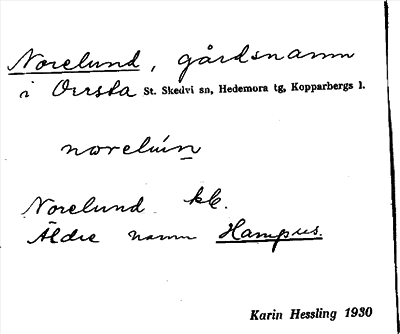 Norelund, gårdsnamn
i Orrsta St. Skedvi sn, Hedemora tg, Kopparbergs l.
norelún
Norelund kb.
Äldre namn Hampus.
Karin Hessling 1930